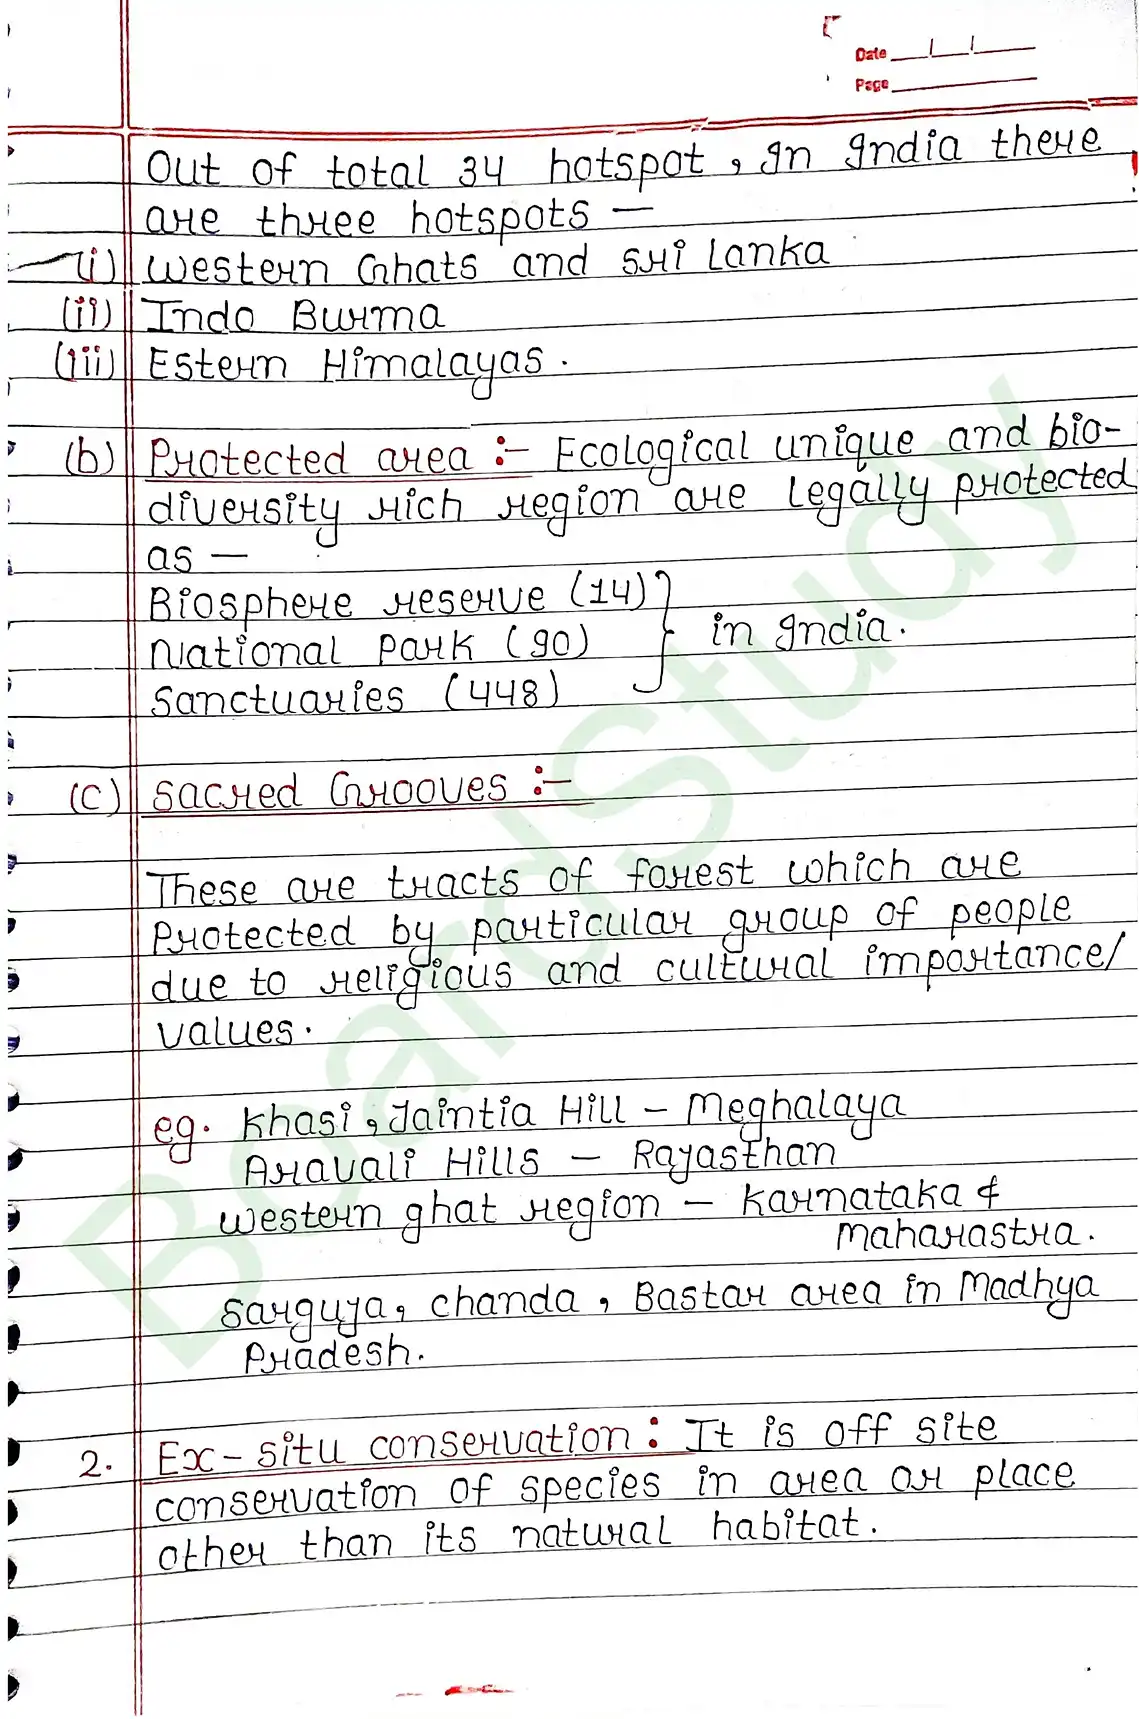 Date
Page
Out of total 34 hotspot, In India there
are three hotspots —
(i) Western Ghats and Sri Lanka
(ii) Indo Burma
(iii) Estern Himalayas.
(b) Protected area :- Ecological unique and bio-
diversity rich region are legally protected
as —
Biosphere reserve (14)
National Park (90) } in India.
Sanctuaries (448)
(c) Sacred Grooves :-
These are tracts of forest which are
Protected by particular group of people
due to religious and cultural importance/
values.
eg. Khasi, Jaintia Hill - Meghalaya
Aravali Hills - Rajasthan
Western ghat region - Karnataka &
Maharastra.
Sarguja, Chanda, Bastar area in Madhya
Pradesh.
2. Ex-situ conservation : It is off site
conservation of species in area or place
other than its natural habitat.
BoardStudy